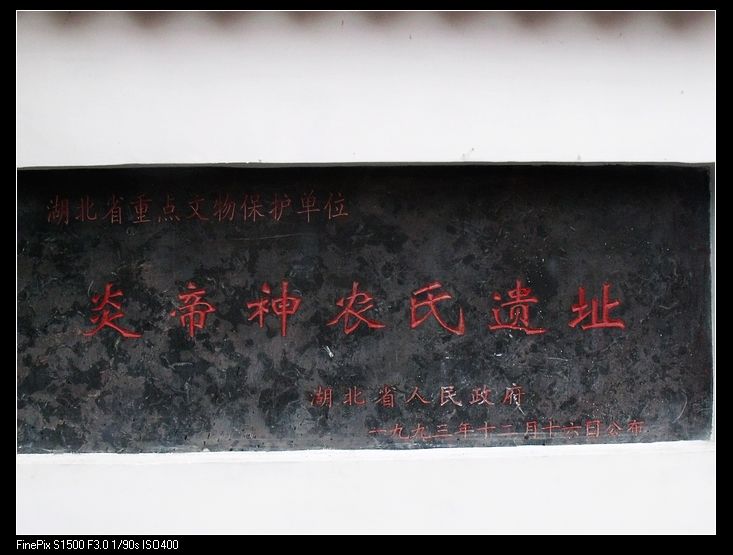 湖北省重点文物保护单位
炎帝神农氏遗址
湖北省人民政府
一九九三年十二月十六日公布
FinePix S1500 F3.0 1/90s ISO400